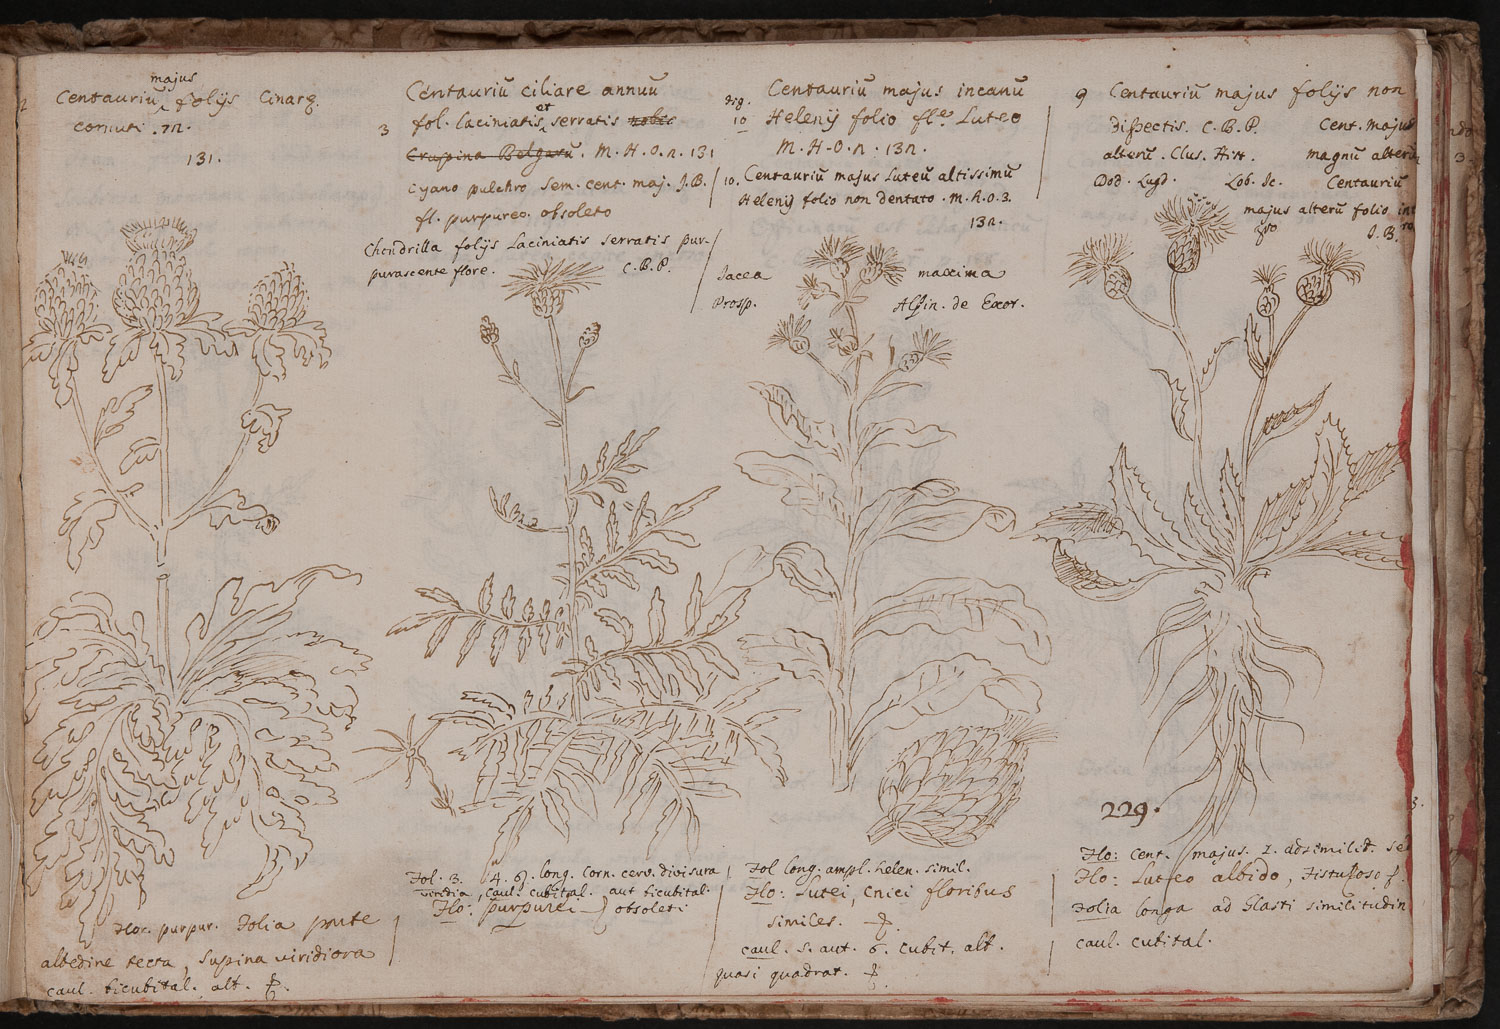 majus
Centauriũ folijs Cinarę
cornuti . 72.
131.
Centauriũ ciliare annuũ
et
3 fol. laciniatis serratis nobis
Crupina Belgarũ. M. H. O. n. 131
Cyano pulchro sem. cent. maj. J.B.
fl. purpureo obsoleto
Chondrilla folijs Laciniatis serratis pur-
purascente flore. C.B.P.
Centauriũ majus incanũ
fig.
10 Helenij folio fl.e Luteo
M. H. O. n. 132.
10. Centauriũ majus Luteũ altissimũ
Helenij folio non dentato. M. R. O. 3.
132.
Jacea maxima
Prosp. Alpin. de Exot.
9 Centauriũ majus folijs non
dissectis. C.B.P. Cent. majus
alterũ. Clus. Hist. magnũ alterũ
Dod. Lugd. Lob. Ic. Centauriũ
majus alterũ folio
J.B.
229.
Flor. purpur. Folia parte
albedine tecta, supina viridiora
caul. bicubital. alt. ♃.
Fol. 3. 4. 6). long. corn. cerv. divisura
viridia, caul. cubital. aut bicubital.
Flo: purpurei obsoleti
Fol long. ampl. helen. simil.
Flo: lutei, cnici floribus
similes. ♃.
caul. 5. aut 6. cubit. alt.
quasi quadrat. ♃.
Flo: cent. majus. 1. adsimilid. sed
Flo: Luteo albido, Fistuloso f.
Folia longa ad Glasti similitudin
caul. cubital.